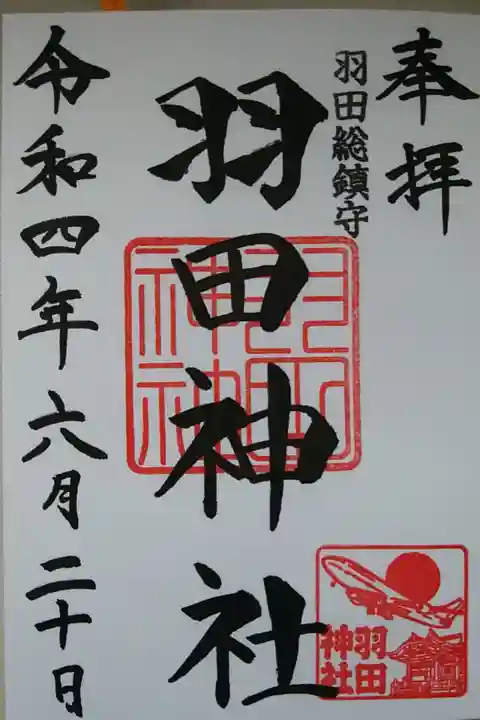 奉拝
羽田総鎮守
羽田神社
羽田神社
令和四年六月二十日
羽田
神社